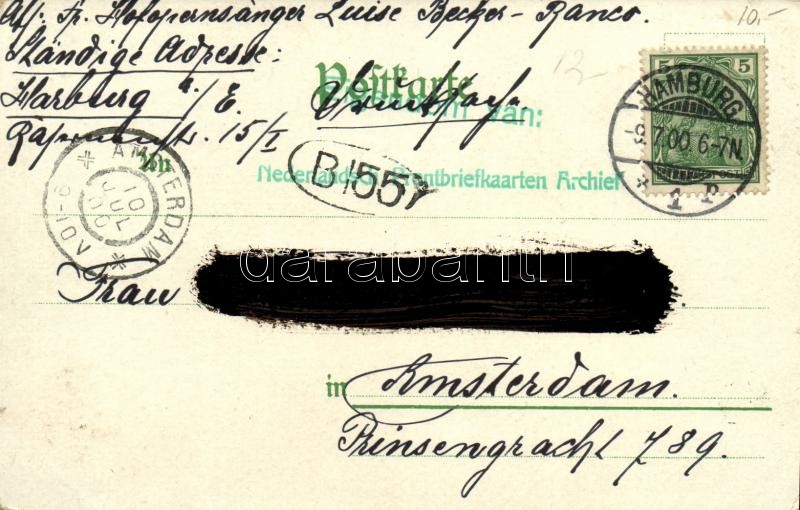 Abs: Fr. Hofopernsänger Luise Becker-Ranco.
10.-
Ständige Adresse:
12
Postkarte
5 5
Harburg a/E. Drucksache
van:
15/I
HAMBURG
7.00 6-7N.
1
An
Nederlandsch Prentbriefkaarten Archief
B1557
AMSTERDAM
10
JUL
00
darabanth
Frau
in Amsterdam.
Prinsengracht 789.